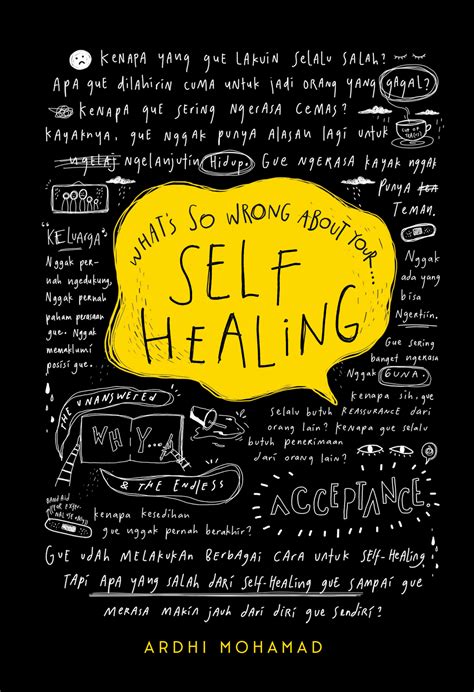 KENAPA YANG GUE LAKUIN SELALU SALAH?
APA GUE DILAHIRIN CUMA UNTUK JADI ORANG YANG GAGAL?
KENAPA GUE SERING NGERASA CEMAS?
KAYAKNYA, GUE NGGAK PUNYA ALASAN LAGI UNTUK
NGELAJ NGELANJUTIN HIDUP. GUE NGERASA KAYAK NGGAK
PUNYA TEMAN.
"KELUARGA"
NGGAK PER-
NAH NGEDUKUNG,
NGGAK PERNAH
PAHAM PERASAAN
GUE. NGGAK
MEMAKLUMI
POSISI GUE.
WHAT'S SO WRONG ABOUT YOUR...
SELF
HEALING
NGGAK
ADA YANG
BISA
NGERTIIN.
GUE SERING
BANGET NGERASA
NGGAK GUNA.
KENAPA SIH, GUE
SELALU BUTUH REASSURANCE DARI
ORANG LAIN? KENAPA GUE SELALU
BUTUH PENERIMAAN
DARI ORANG LAIN?
THE UNANSWERED
WHY...
& THE ENDLESS
ACCEPTANCE.
BAND AID
KENAPA KESEDIHAN
GUE NGGAK PERNAH BERAKHIR?
GUE UDAH MELAKUKAN BERBAGAI CARA UNTUK SELF-HEALING,
TAPI APA YANG SALAH DARI SELF-HEALING GUE SAMPAI GUE
MERASA MAKIN JAUH DARI DIRI GUE SENDIRI?
ARDHI MOHAMAD